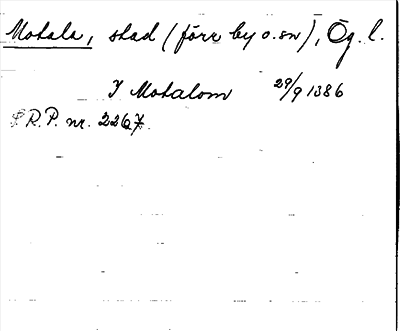 Motala, stad (förr by o. sn), Ög. l.
I Motalom 29/9 1386
S.R.P. nr. 2267.